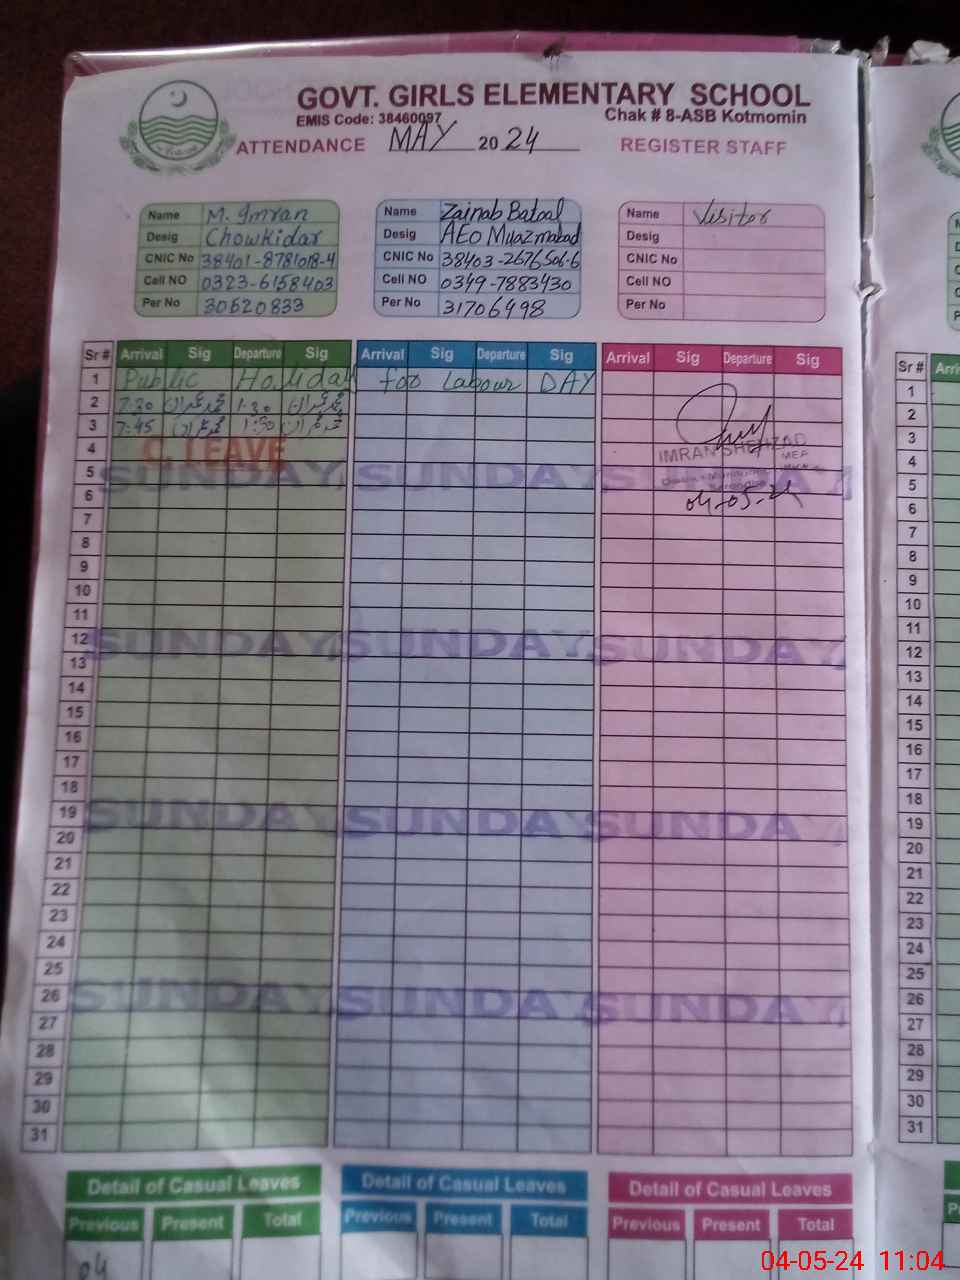 GOVT. GIRLS ELEMENTARY SCHOOL
EMIS Code: 38460097
Chak # 8-ASB Kotmomin
ATTENDANCE MAY 2024 REGISTER STAFF
Name M. Imran
Desig Chowkidar
CNIC No 38401-8781018-4
Cell NO 0323-6158403
Per No 30620833
Name Zainab Batool
Desig AEO Muazmabad
CNIC No 38403-2676506-6
Cell NO 0349-7883430
Per No 31706498
Name Visitor
Desig
CNIC No
Cell NO
Per No
Sr # Arrival Sig Departure Sig Arrival Sig Departure Sig Arrival Sig Departure Sig
1 Public Holiday for Labour DAY
2 7:30 محمد عمران 1:30 محمد عمران
3 7:45 محمد عمران 1:30 محمد عمران
4 C. LEAVE
IMRAN SHEHZAD
MEA
04-05-24
5 SUNDAY SUNDAY SUNDAY
6
7
8
9
10
11
12 SUNDAY SUNDAY SUNDAY
13
14
15
16
17
18
19 SUNDAY SUNDAY SUNDAY
20
21
22
23
24
25
26 SUNDAY SUNDAY SUNDAY
27
28
29
30
31
Detail of Casual Leaves Detail of Casual Leaves Detail of Casual Leaves
Previous Present Total Previous Present Total Previous Present Total
04
Sr #
1
2
3
4
5
6
7
8
9
10
11
12
13
14
15
16
17
18
19
20
21
22
23
24
25
26
27
28
29
30
31
04-05-24 11:04